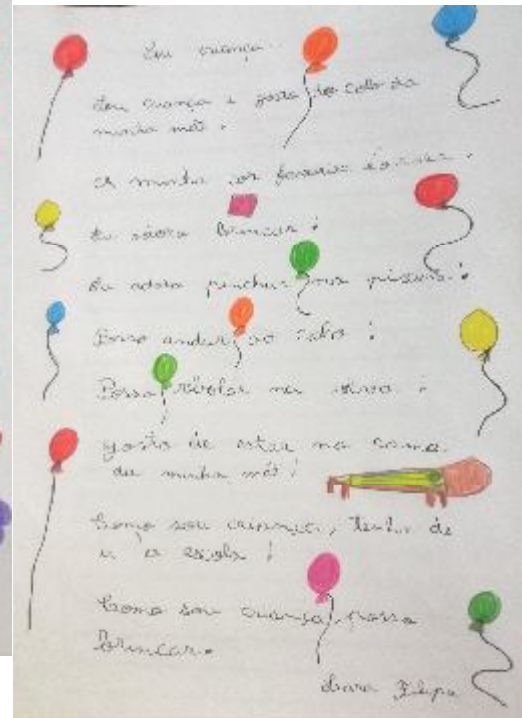 Sou criança...
Sou criança e gosto do colo da
minha mãe.
A minha cor favorita é o rosa.
Eu adoro brincar!
Eu adoro nas piscinas!
Posso andar ao!
Posso rebolar na relva!
gosto de estar na cama
da minha mãe!
Como sou criança, tenho de
ir à escola!
Como sou criança posso
Brincar.
Lara Filipa